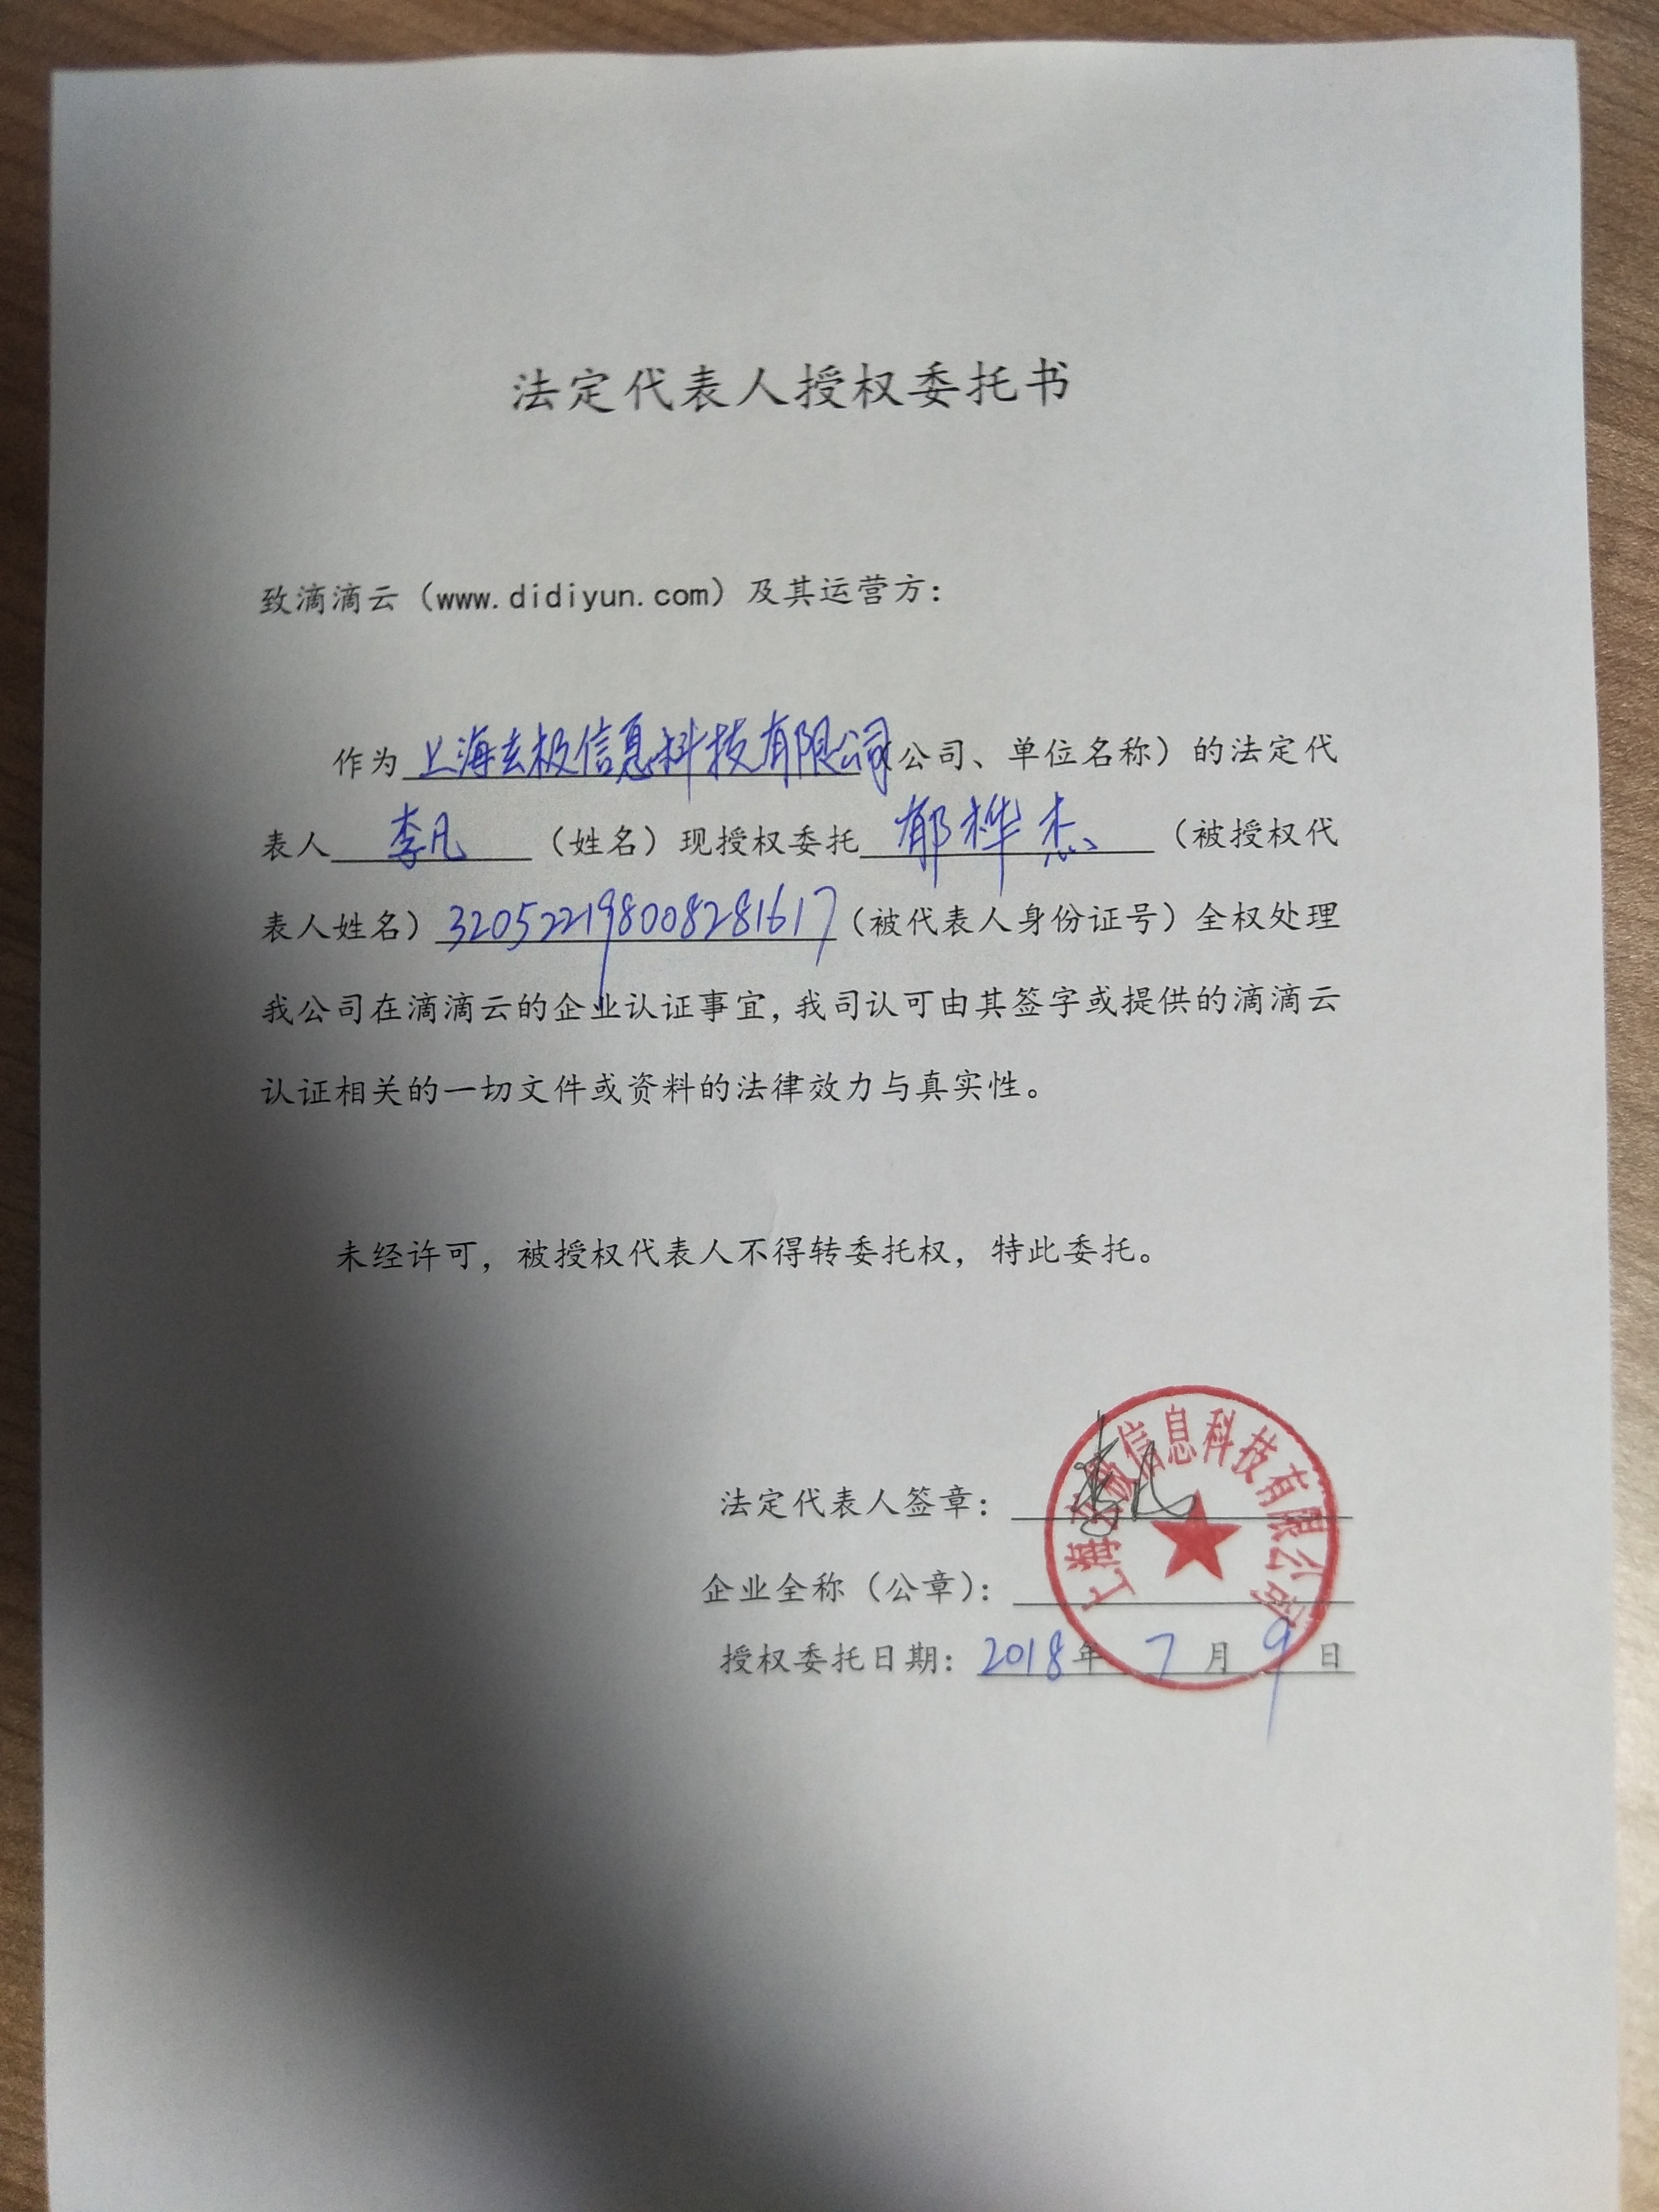 法定代表人授权委托书
致滴滴云（www.didiyun.com）及其运营方：
作为上海玄极信息科技有限公司公司、单位名称）的法定代
表人李凡（姓名）现授权委托郁桦杰（被授权代
表人姓名）320522198008281617（被代表人身份证号）全权处理
我公司在滴滴云的企业认证事宜，我司认可由其签字或提供的滴滴云
认证相关的一切文件或资料的法律效力与真实性。
未经许可，被授权代表人不得转委托权，特此委托。
法定代表人签章：李凡
企业全称（公章）：
上海信息科技有限公司
授权委托日期：2018年7月9日